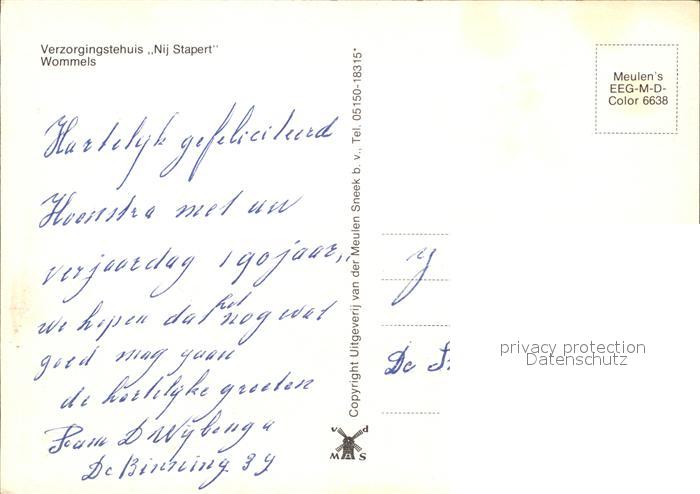 Verzorgingstehuis ,,Nij Stapert"
Wommels
Hartelijk gefeliciteerd
Hoonstra met uw
verjaardag, 90 jaar,,
we hopen dat het nog wat
goed mag gaan
de hartelijke groeten
Fam D Wijbenga
De Binning 39
Copyright Uitgeverij van der Meulen Sneek b. v., Tel. 05150-18315*
v d
M S
Meulen's
EEG-M-D-
Color 6638
y
De
privacy protection
Datenschutz